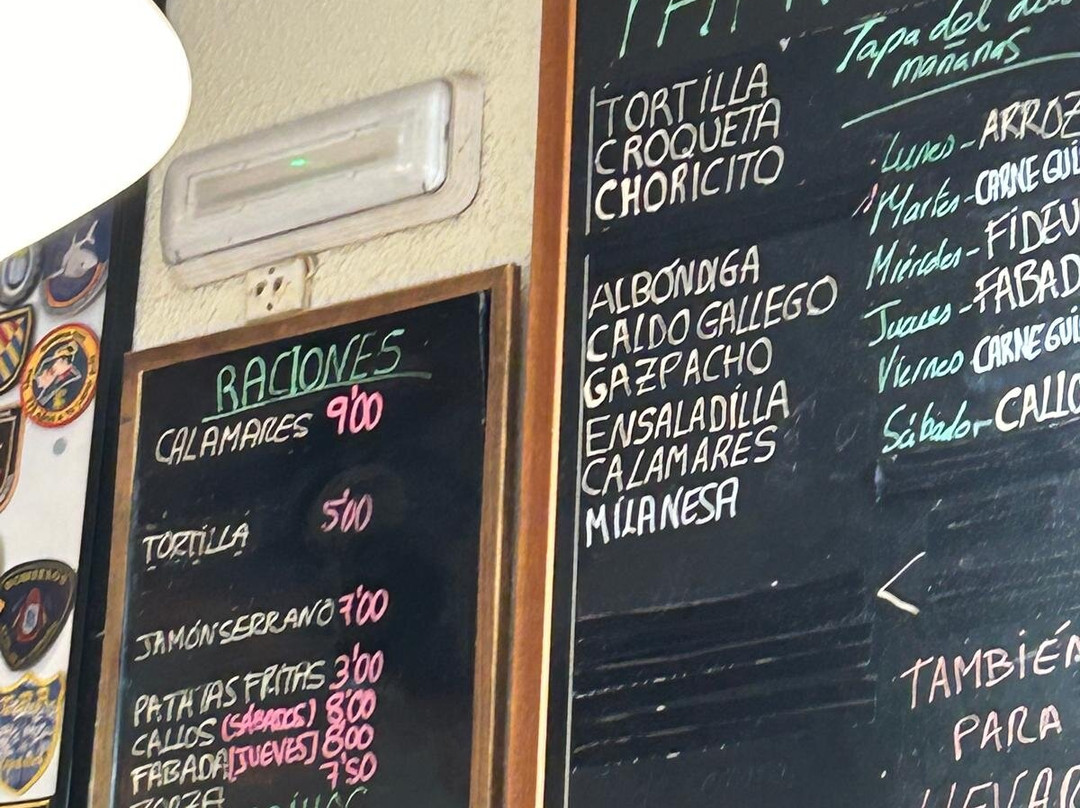 RACIONES
CALAMARES 9'00
TORTILLA 5'00
JAMÓN SERRANO 7'00
PATATAS FRITAS 3'00
CALLOS (SÁBADOS) 8'00
FABADA [JUEVES] 8'00
ZORZA 7'50
TORTILLA
CROQUETA
CHORICITO
ALBÓNDIGA
CALDO GALLEGO
GAZPACHO
ENSALADILLA
CALAMARES
MILANESA
Tapa del
mañanas
Lunes - ARROZ
Martes - CARNE GUI
Miércoles - FIDEU
Jueves - FABAD
Viernes CARNE GUI
Sábado - CALLO
<
TAMBIÉN
PARA
LLEVAR